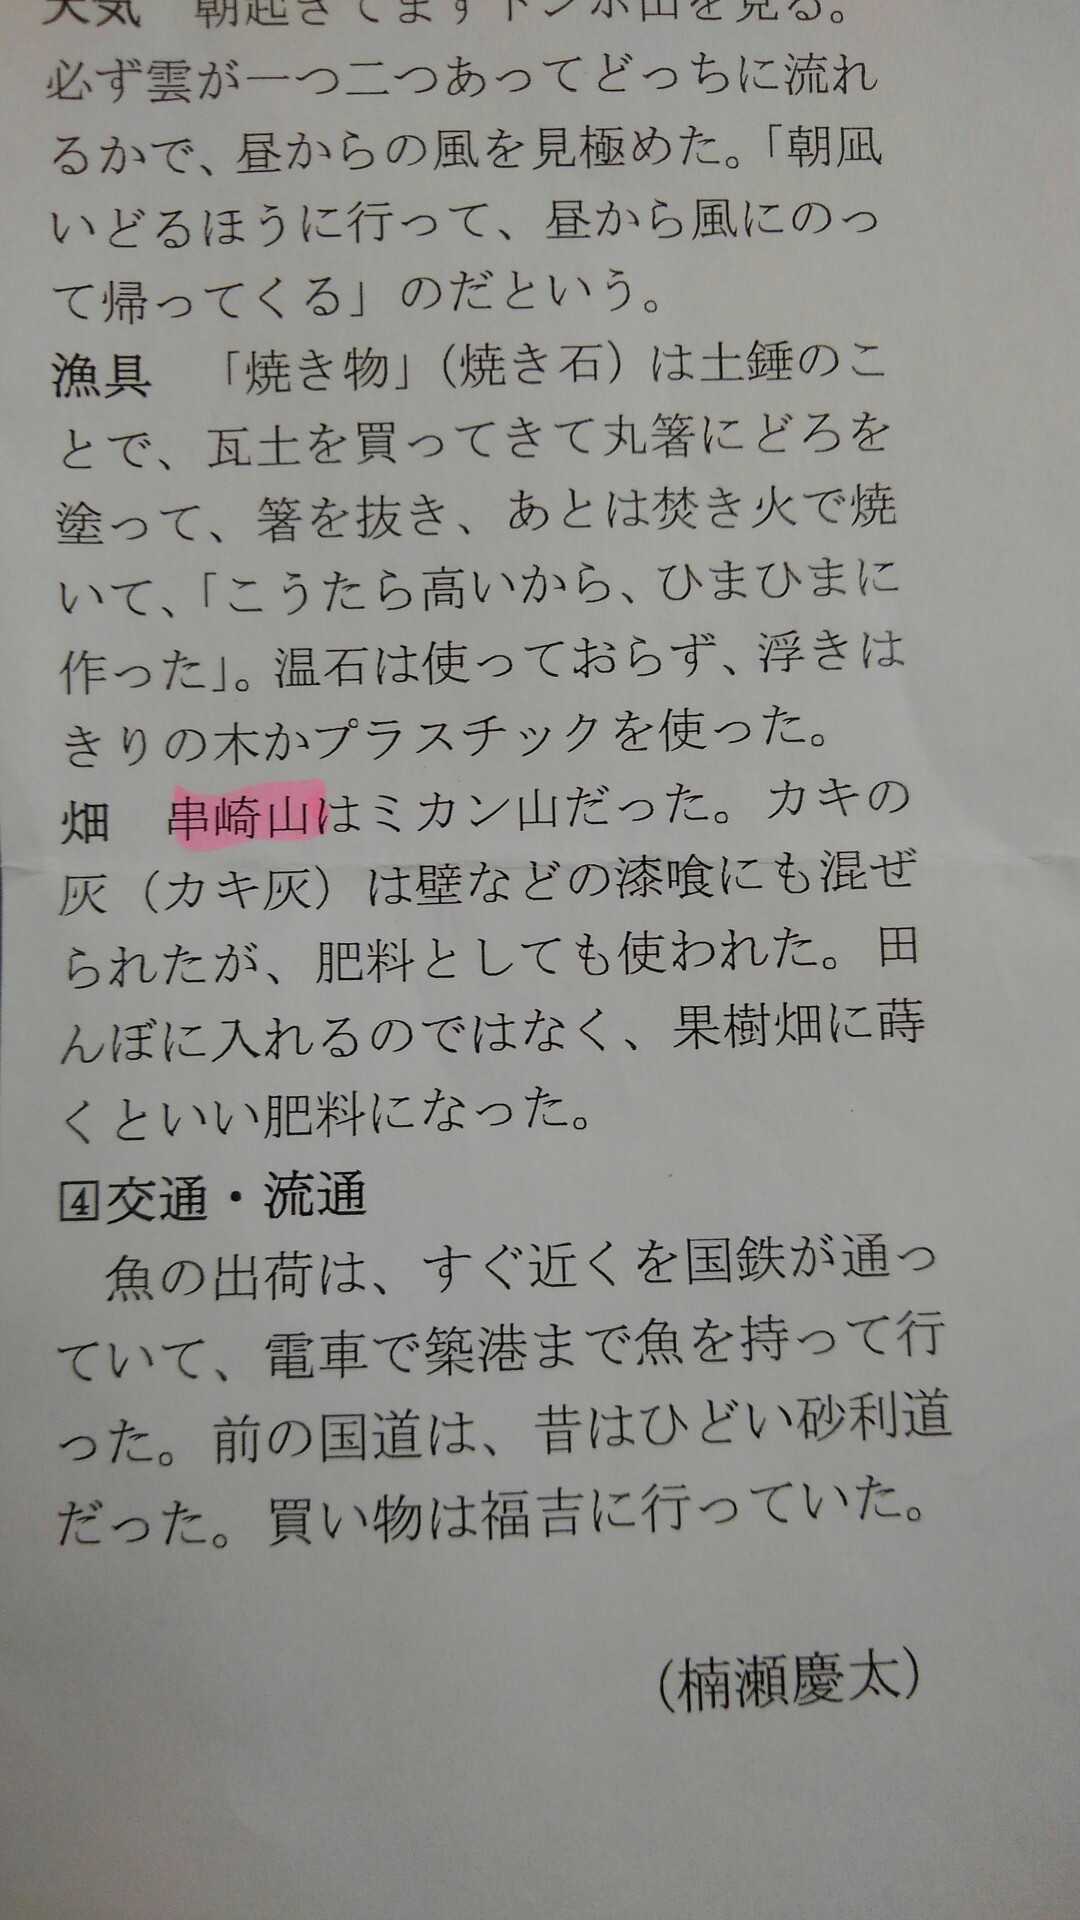 天気　朝起きてまずトンボ山を見る。
必ず雲が一つ二つあってどっちに流れ
るかで、昼からの風を見極めた。「朝凪
いどるほうに行って、昼から風にのっ
て帰ってくる」のだという。
漁具　「焼き物」（焼き石）は土錘のこ
とで、瓦土を買ってきて丸箸にどろを
塗って、箸を抜き、あとは焚き火で焼
いて、「こうたら高いから、ひまひまに
作った」。温石は使っておらず、浮きは
きりの木かプラスチックを使った。
畑　串崎山はミカン山だった。カキの
灰（カキ灰）は壁などの漆喰にも混ぜ
られたが、肥料としても使われた。田
んぼに入れるのではなく、果樹畑に蒔
くといい肥料になった。
4交通・流通
　魚の出荷は、すぐ近くを国鉄が通っ
ていて、電車で築港まで魚を持って行
った。前の国道は、昔はひどい砂利道
だった。買い物は福吉に行っていた。
（楠瀬慶太）